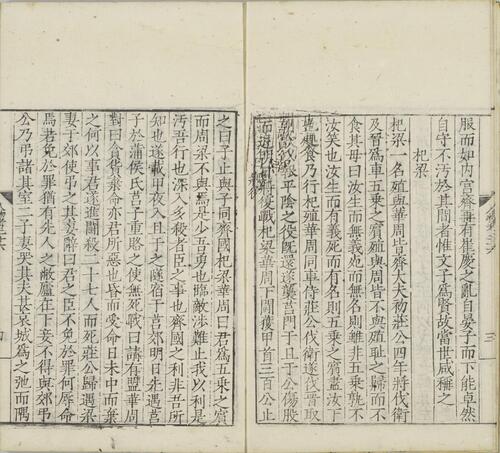 服而如内宫齊丗有崔慶之亂自晏子而下能卓然
自守不汚於其間者惟文子爲賢故當世咸稱之
杞梁
杞梁一名殖與華周皆齊大夫初莊公四年將伐衛
及晉爲車五乗之賔殖與周皆不與殖耻之歸而不
食其母曰汝生而無義死而無名則雖非五乗孰不
汝笑也汝生而有義死而有名則五乗之賔盡汝下
也趣食乃行杞殖華周同車侍莊公伐衛遂伐晉取
朝歌 平隂之役旣還遂襲莒門于且于公傷股
而退 復戰杞梁華周下鬬獲甲首三百公止
之曰子止與子同齊國杞梁華周曰君爲五乗之賔
而周梁不與焉是少吾勇也臨敵涉難止我以利是
汚吾行也深入多殺者臣之事也齊國之利非吾所
知也遂載甲夜入且于之隧宿于莒郊明日先遇莒
子於蒲侯氏莒子重賂之使無死戰曰請有盟華周
對曰貪貨棄命亦君所惡也昏而受命日未中而棄
之何以事君遂進鬬殺二十七人而死莊公歸遇梁
妻于郊使弔之其妻辭曰君之臣不免於罪何辱命
焉君免於罪猶有先人之敝廬在下妾不得與郊弔
公乃弔諸其室二子妻哭其夫甚哀城爲之弛而隅